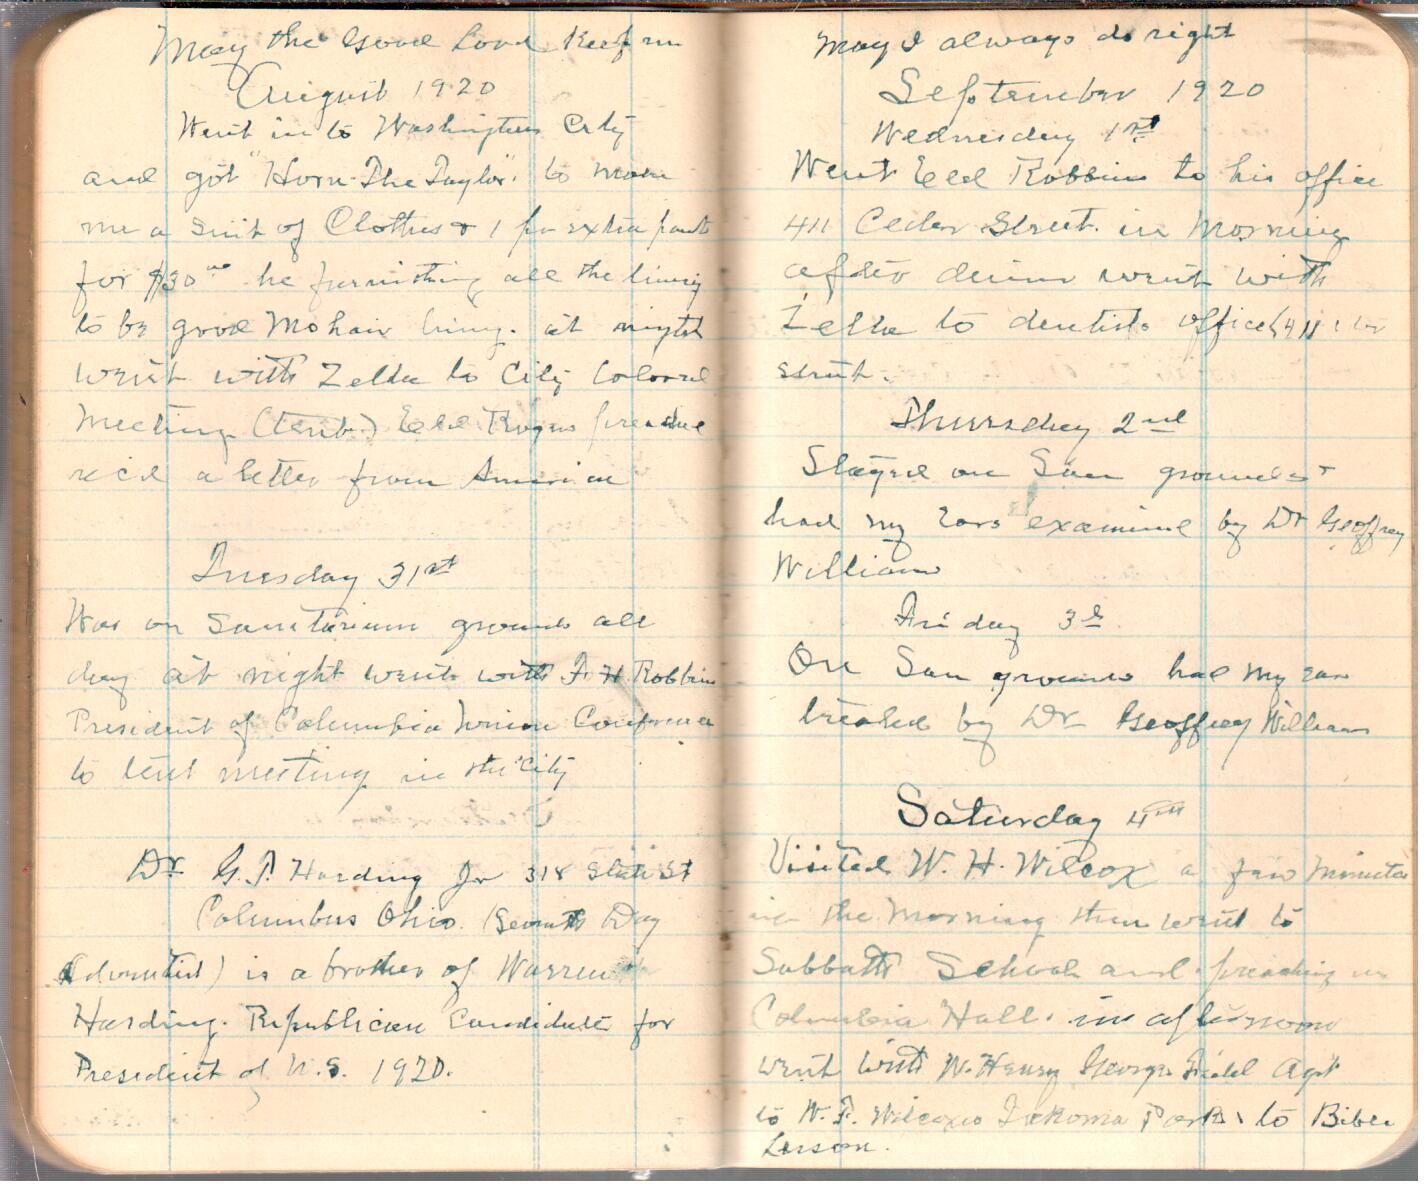 May the Good Lord Keep me
August 1920
Went in to Washington City
and got "Horn-The Taylor" to make
me a Suit of Clothes & 1 pr extra pants
for $30 he furnishing all the lining
to be good Mohair lining. at night
went with Zella to City Colored
Meeting (Tent) Eld Rogers preached
rec'd a letter from America
Tuesday 31st
Was on Sanitarium grounds all
day at night went with F. H. Robbins
President of Columbia Union Conference
to tent meeting in the City
Dr G. T. Harding Jr 318 State St
Columbus Ohio. (Seventh Day
Adventist) is a brother of Warren
Harding. Republican Candidate for
President of U.S. 1920.
May I always do right
September 1920
Wednesday 1st
Went Eld Robbins to his office
411 Cedar Street. in Morning
after dinner went with
Zella to dentists office (411
street.
Thursday 2nd
Stayed on San grounds &
had my Ears examined by Dr Geoffrey
Williams
Friday 3d
On San grounds had my ear
treated by Dr Geoffrey Williams
Saturday 4th
Visited W. H. Wilcox a few minutes
in the Morning then went to
Sabbath School and preaching in
Columbia Hall. in afternoon
went with W. Henry George Field Agt
to W. F. Wilcoxes Takoma Park to Bible
Lesson.